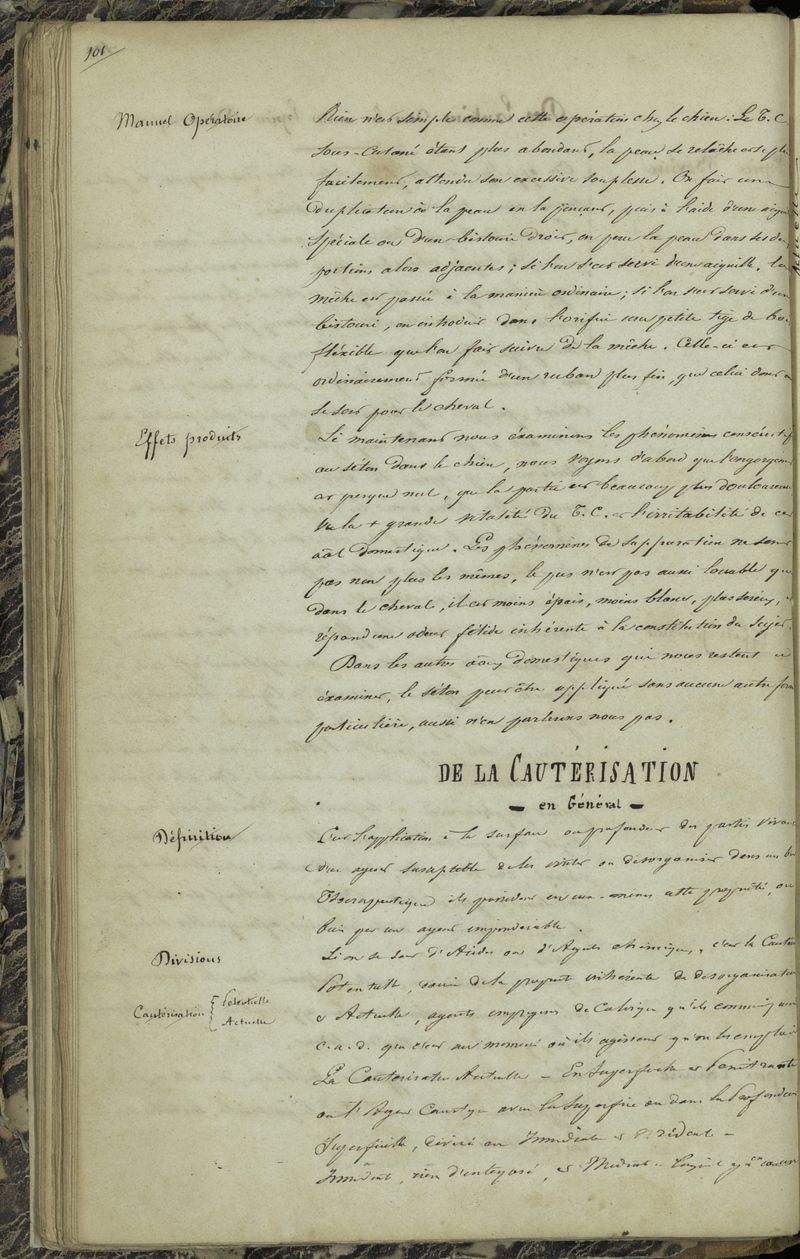 101
Manuel Opératoire
Rien n'est simple comme cette opération chez le chien : Le T. C
sous-Cutané étant plus abondant, la peau se relâche
facilement, attendu son excessive souplesse. On fait une
duplicature à la peau en la pinçant, puis à l'aide d'une
spéciale ou d'un bistouri droit, on perce la peau dans ses
portions alors adjacentes ; si l'on s'est servi d'une aiguille, la
mêche est passée à la manière ordinaire ; si l'on s'est servi d'un
bistouri, on introduit dans l'orifice une petite tige de
fléxible que l'on fait suivre de la mêche. Celle-ci est
ordinairement formée d'un ruban plus fin, que celui dont
se sert pour le cheval.
Effets produits
Si maintenant nous examinons les phénomènes
au séton dans le chien, nous voyons d'abord que
est presque nul, que la partie est beaucoup plus
Vu la + grande vitalité du T. C. et l'irritabilité de cet
domestique. Les phénomènes de suppuration ne sont
pas non plus les mêmes, le pus n'est pas aussi louable que
dans le cheval, il est moins épais, moins blanc, plus séreux,
répand une odeur fétide inhérente à la constitution du sujet.
Dans les autres domestiques qui nous restent a
éxaminer, le séton peut être appliqué sans aucune autre
particulière, aussi n'en parlerons nous pas.
DE LA CAUTÉRISATION
- en Général -
Définition
C'est l'application à la surface ou profondeur des parties
d'un agent susceptible de les irriter ou désorganiser dans un but
Thérapeutique ils possèdent en eux-mêmes cette propriété, ou
bien par un agent impondérable.
Divisions
Si on se sert d'Acides ou d'Agents chimiques, c'est la
Cautérisation { Potentielle
Actuelle
Potentielle, de la propriété inhérente de
et Actuelle, agents de Calorique qu'ils
c. a. d. que c'est au moment où ils agissent qu'on les
La Cautérisation Actuelle - En Superficielle et Pénétrante
ou l'Agent Caustique avec la Superficie ou dans la Profondeur
Superficielle, divisé en Immédiate et
Immédiat, rien d'interposé, et